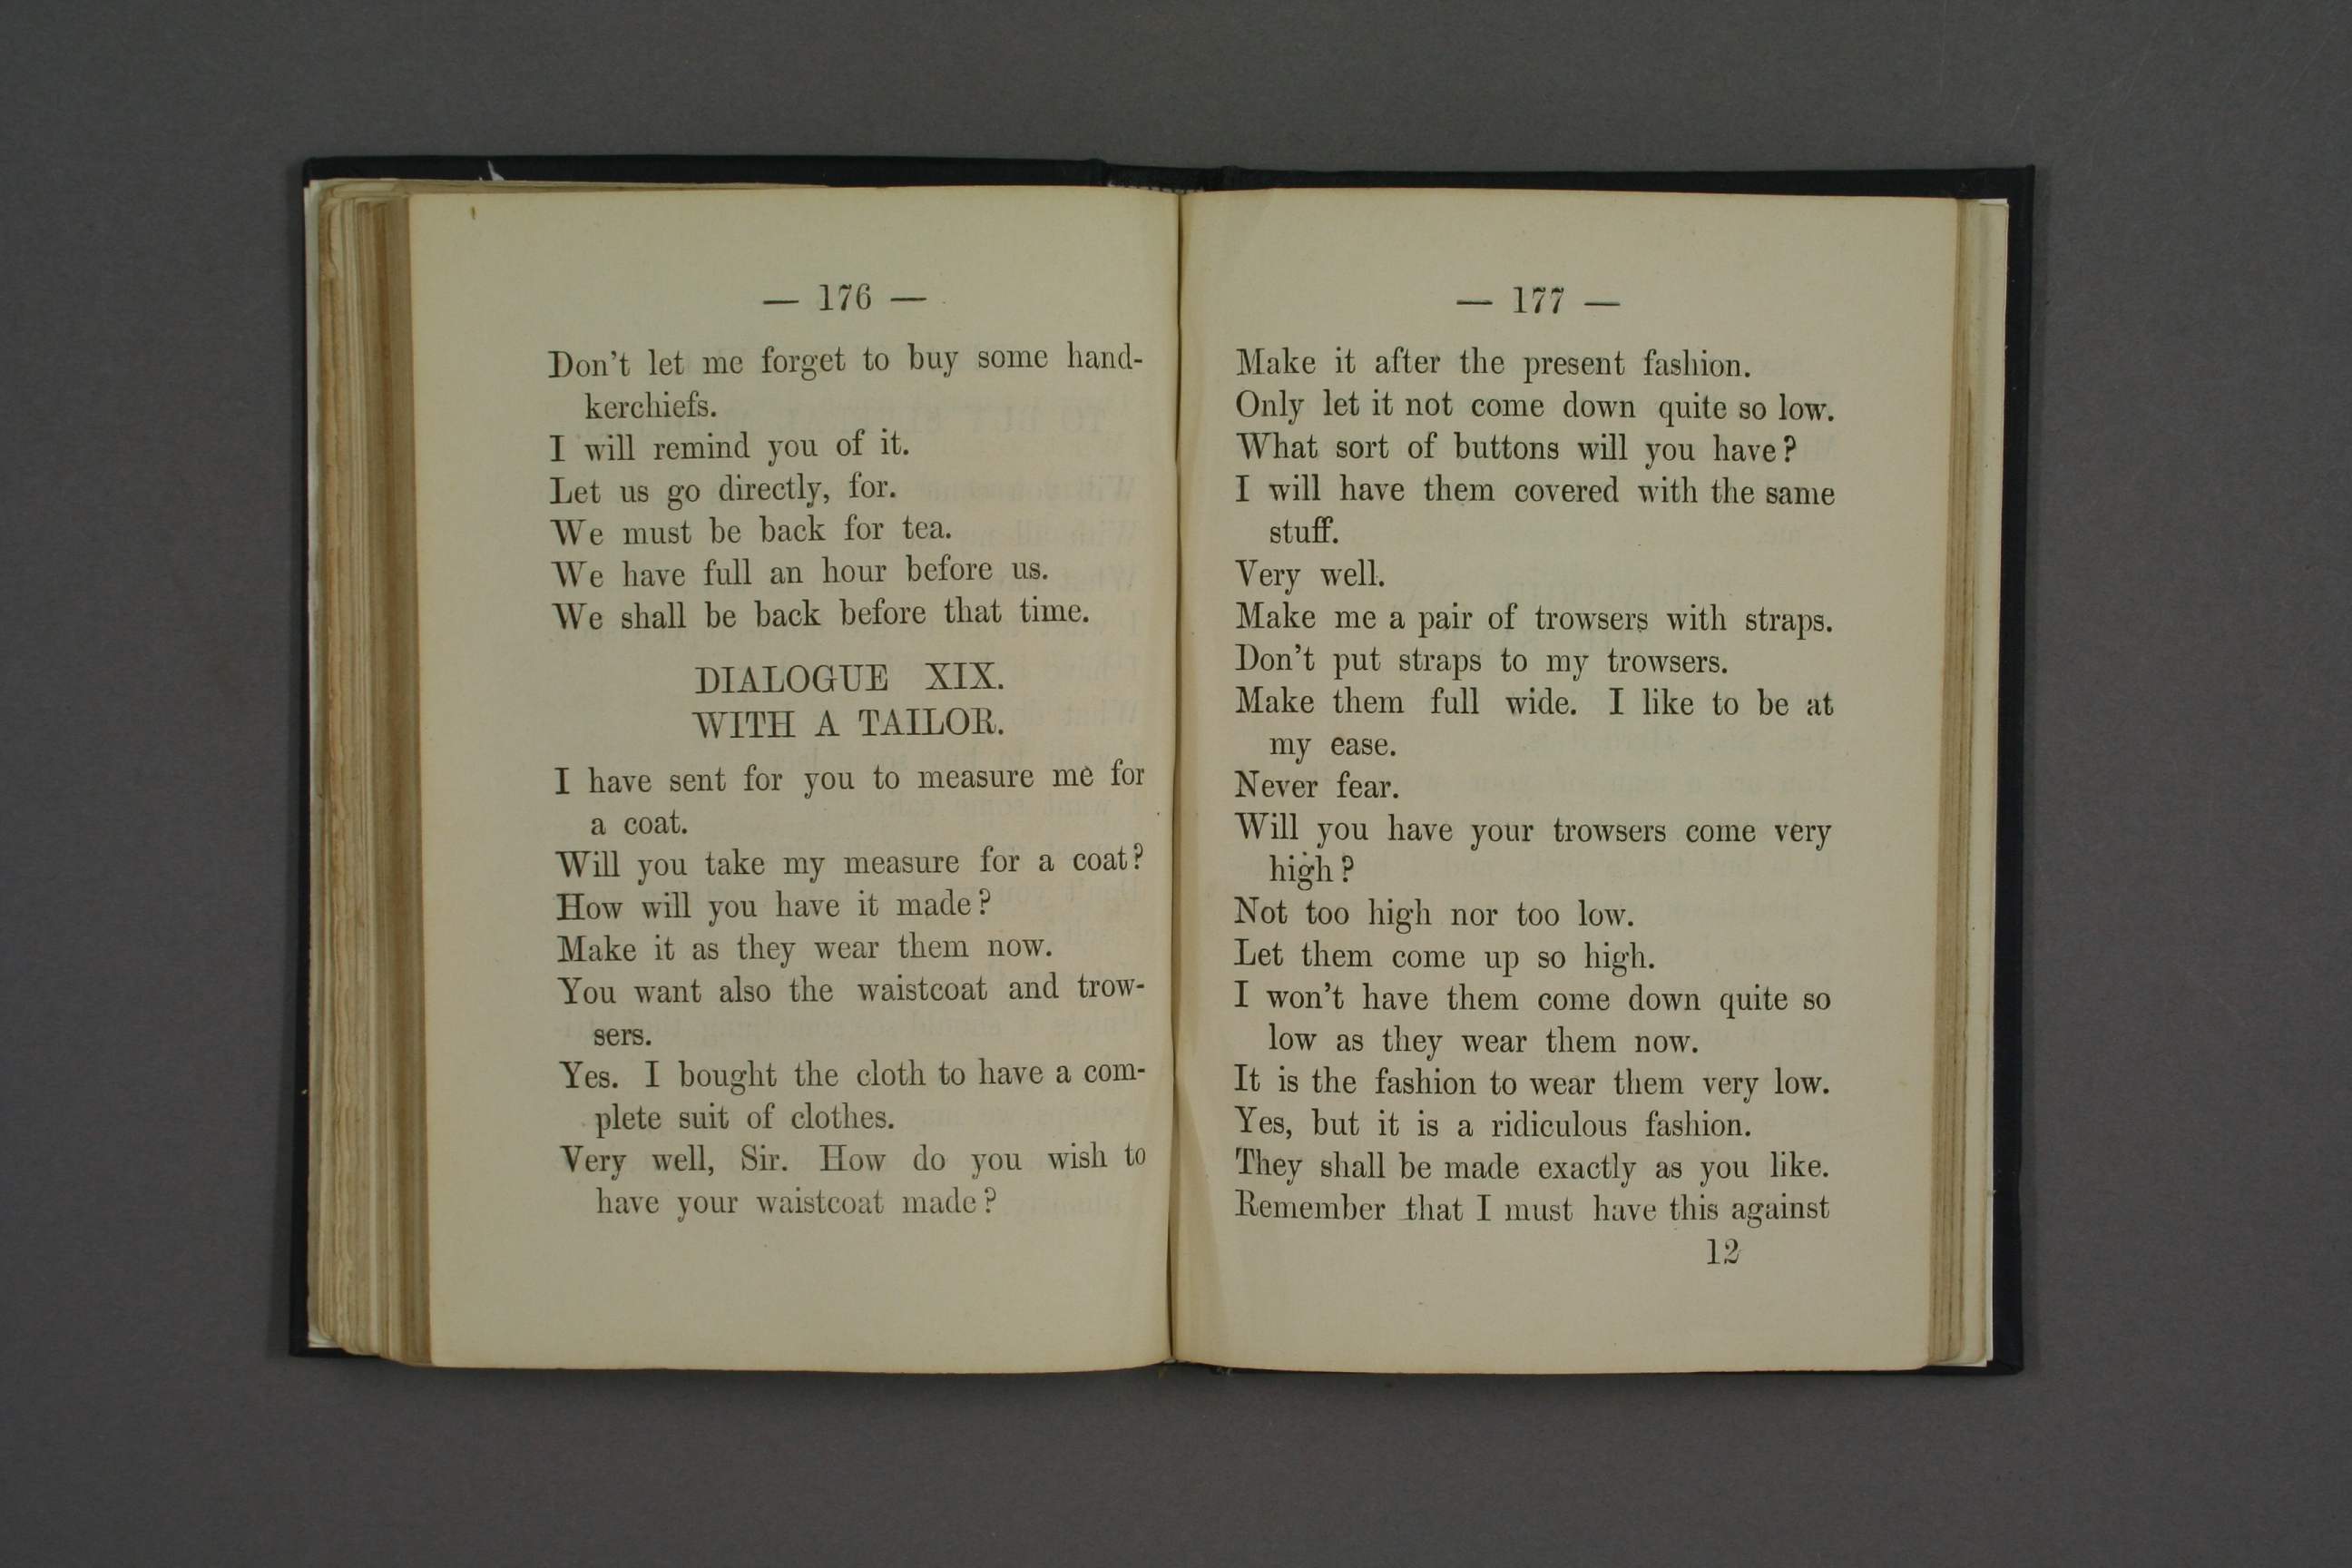 — 176 —
Don't let me forget to buy some hand-
kerchiefs.
I will remind you of it.
Let us go directly, for.
We must be back for tea.
We have full an hour before us.
We shall be back before that time.
DIALOGUE XIX.
WITH A TAILOR.
I have sent for you to measure me for
a coat.
Will you take my measure for a coat?
How will you have it made?
Make it as they wear them now.
You want also the waistcoat and trow-
sers.
Yes. I bought the cloth to have a com-
plete suit of clothes.
Very well, Sir. How do you wish to
have your waistcoat made?
— 177 —
Make it after the present fashion.
Only let it not come down quite so low.
What sort of buttons will you have?
I will have them covered with the same
stuff.
Very well.
Make me a pair of trowsers with straps.
Don't put straps to my trowsers.
Make them full wide. I like to be at
my ease.
Never fear.
Will you have your trowsers come very
high?
Not too high nor too low.
Let them come up so high.
I won't have them come down quite so
low as they wear them now.
It is the fashion to wear them very low.
Yes, but it is a ridiculous fashion.
They shall be made exactly as you like.
Remember that I must have this against
12